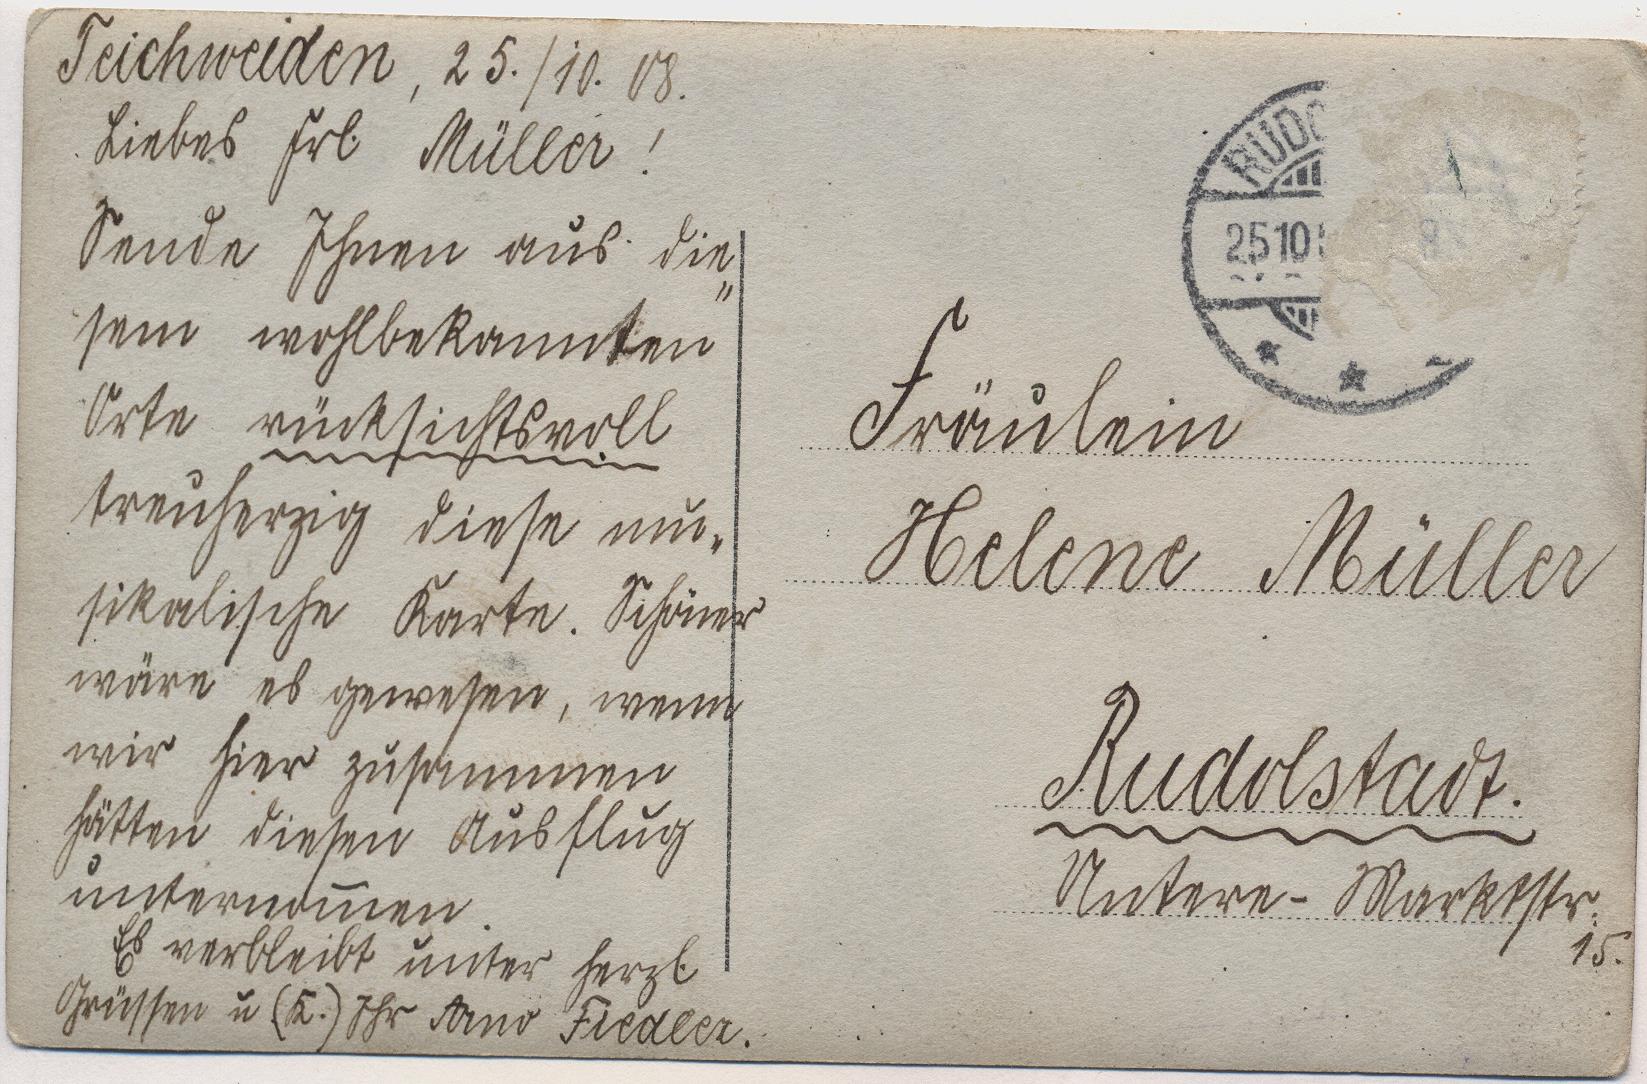 Teichweiden, 25./10. 08.
Liebes Frl. Müller!
Sende Ihnen aus die„
sem wohlbekannten
Orte rücksichtsvoll
treuherzig diese mu„
sikalische Karte. Schöner
wäre es gewesen, wenn
wir hier zusammen
hätten diesen Ausflug
unternom̅en.
Es verbleibt unter herzl.
Grüssen u (K.) Ihr Arno Fiedler.
25 10
Fräulein
Helene Müller
Rudolstadt.
Untere- Marktstr.
15.